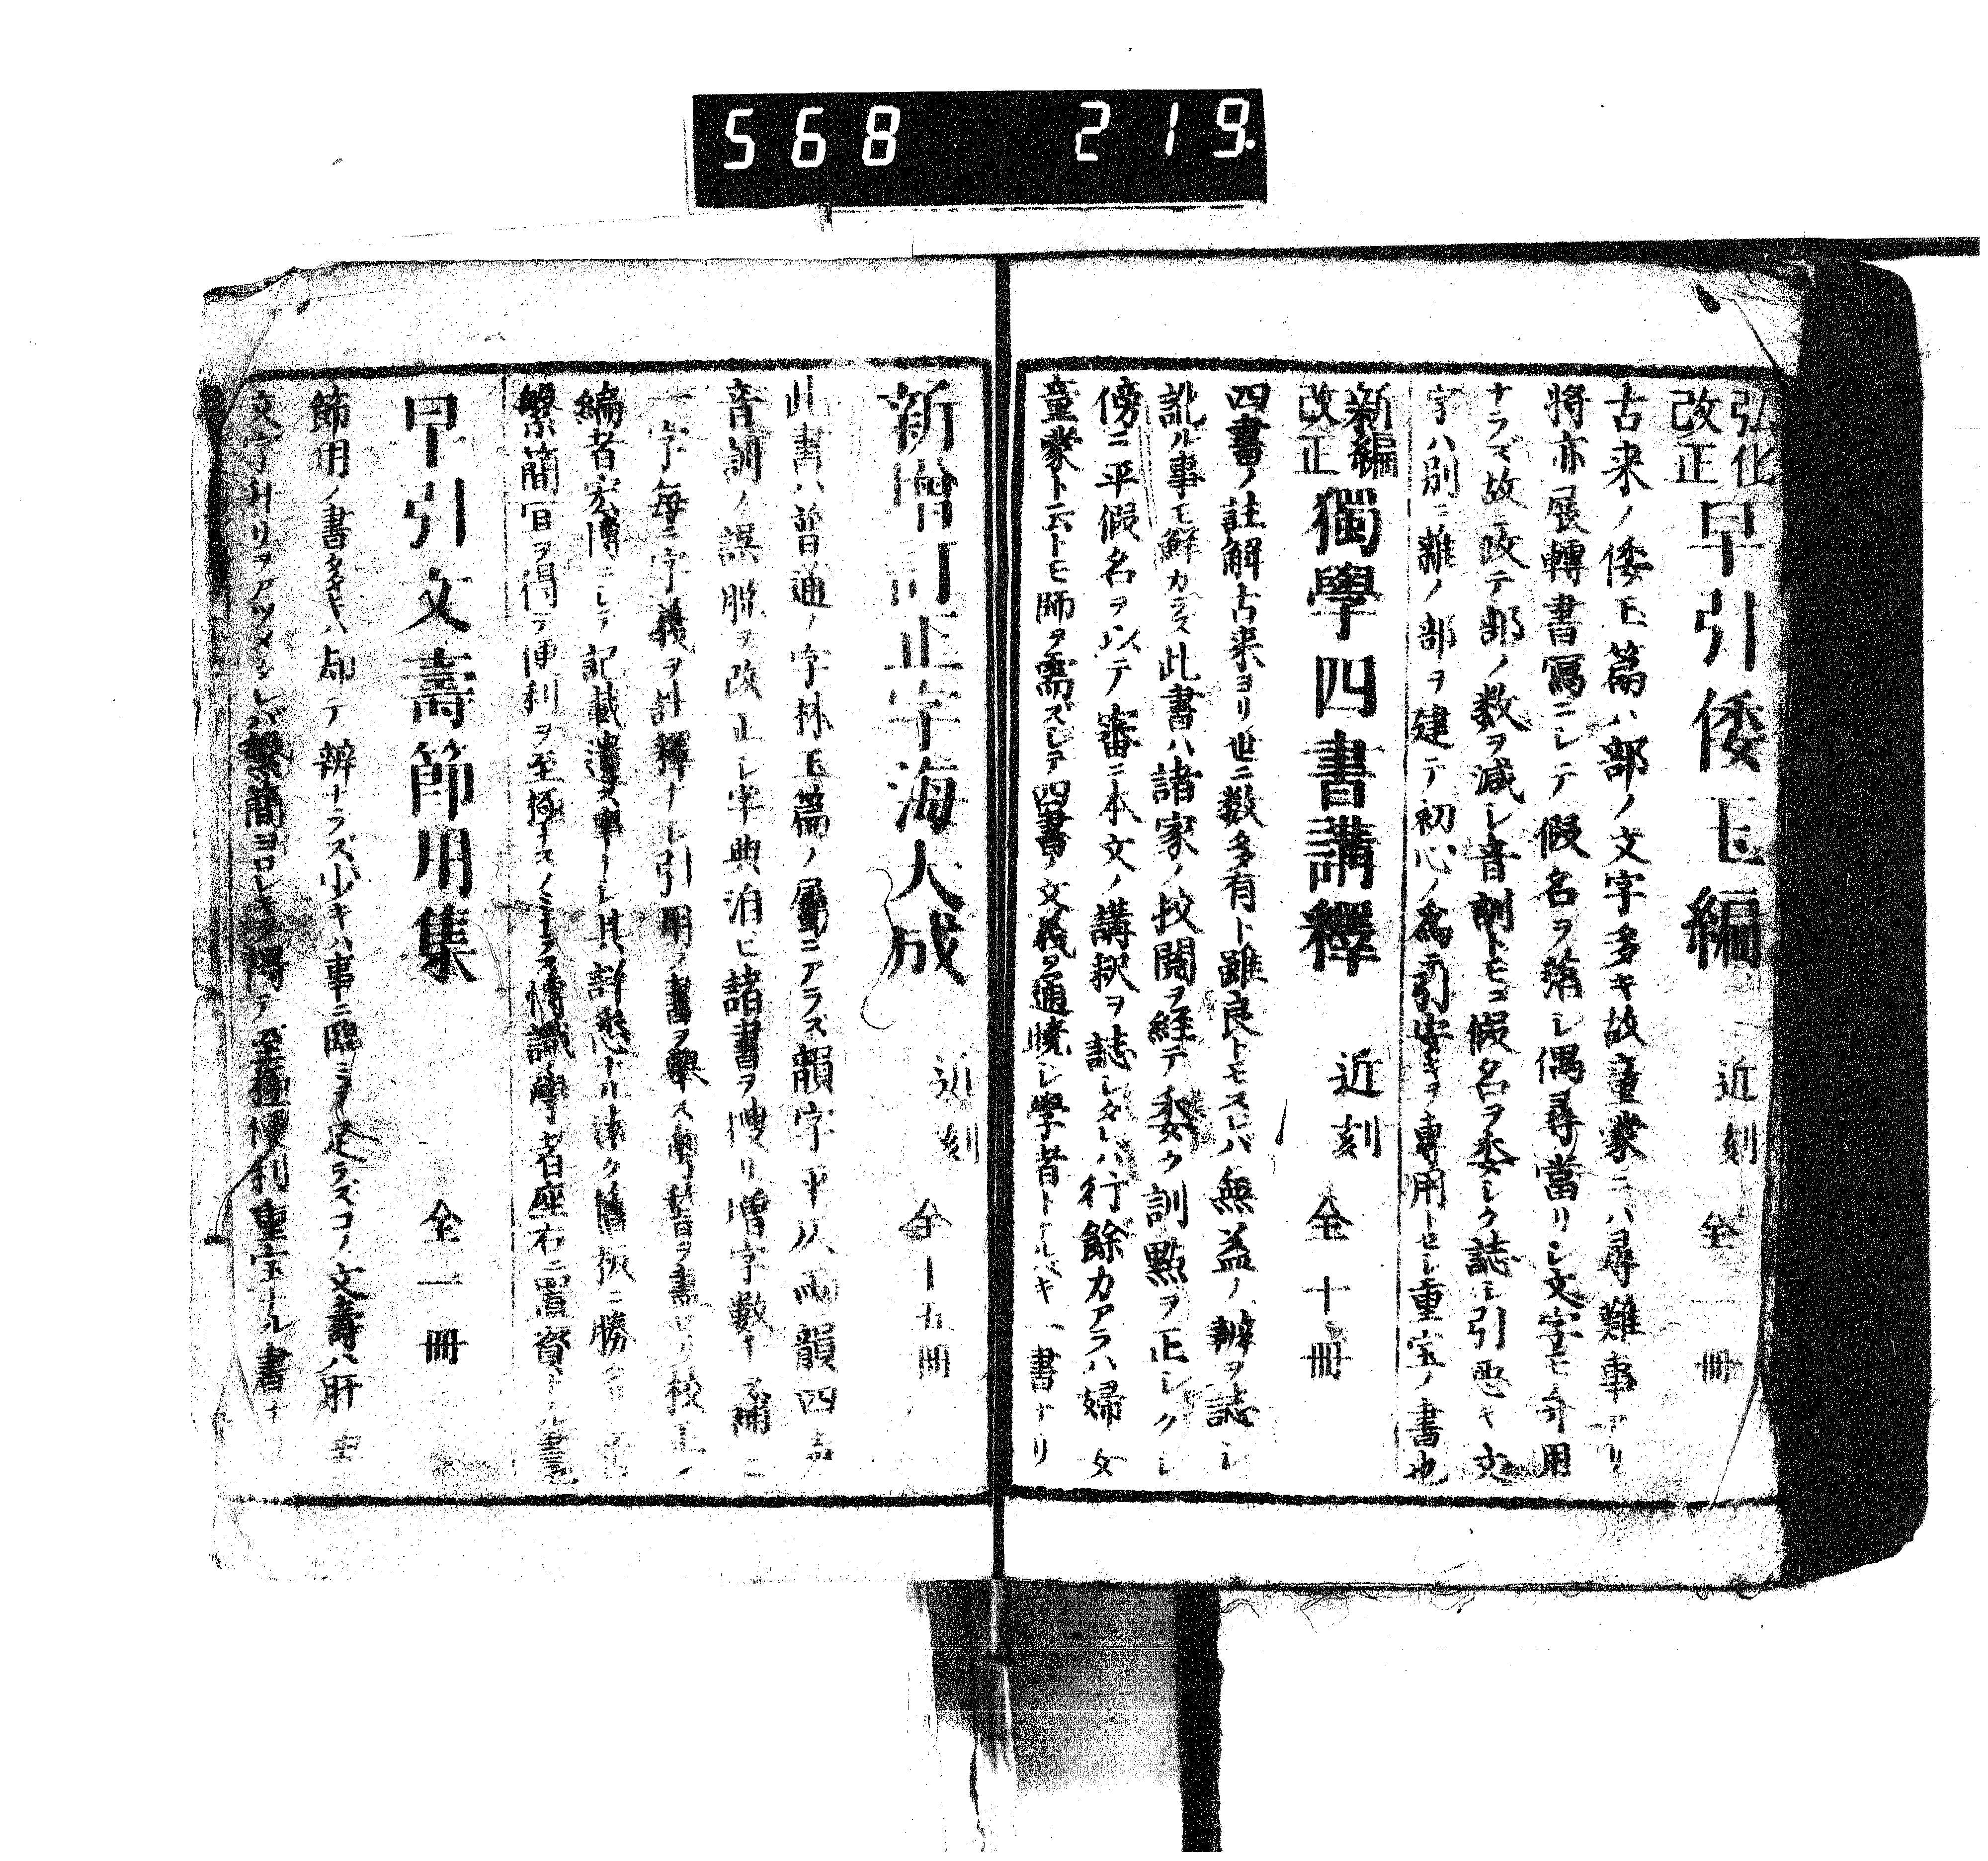 568 219.
弘化改正 早引倭玉編 近刻 全一冊
古来ノ倭玉篇ハ部ノ文字多キ故童蒙ニハ尋難事アリ
将亦展轉書寫ニシテ假名ヲ落シ偶尋當リシ文字モ弁用
ナラズ故ニ改テ部ノ数ヲ減シ音訓トモニ假名ヲ委シク誌シ引悪キ文
字ハ別ニ雜ノ部ヲ建テ初心ノ為ニ引安キヲ專用トセシ重宝ノ書也
新編改正 獨學四書講釋 近刻 全十冊
四書ノ註解古来ヨリ世ニ数多有ト雖良トモスレハ無益ノ辨ヲ誌シ
訛ル事モ鮮カラス此書ハ諸家ノ挍閲ヲ経テ委ウ訓點ヲ正シクシ
傍ニ平假名ヲ以テ審ニ本文ノ講釈ヲ誌シタレハ行餘力アラハ婦女
童蒙ト云トモ師ヲ需ズシテ四書ノ文義ヲ通暁シ學者トナルベキ一書ナリ
新増訂正字海大成 近刻 全十五冊
此書ハ普通ノ字林玉篇ノ屬ニアラズ韻字平仄両韻四声
音訓ノ誤脱ヲ改正シ字典泊ビ諸書ヲ捜リ増字數千ヲ補ニ
一字毎ニ字義ヲ計釋ナシ引用ノ書ヲ擧ス校正ノ
編者宏博ニシテ記載遺ヲ擧ナシ其詳悉ナリ
繁簡宜ヲ得テ便利ヲ至極ナスノミナラス博識ノ學者座右ニ置資トル書
早引文壽節用集 全一冊
節用ノ書多キハ却テ辨ナラズ少キハ事ニ臨ミテ足ラズコノ文壽ハ肝要
文字バカリヲアツメタレバ繁簡ヨロシキヲ得テ至極便利重宝ナル書ナ